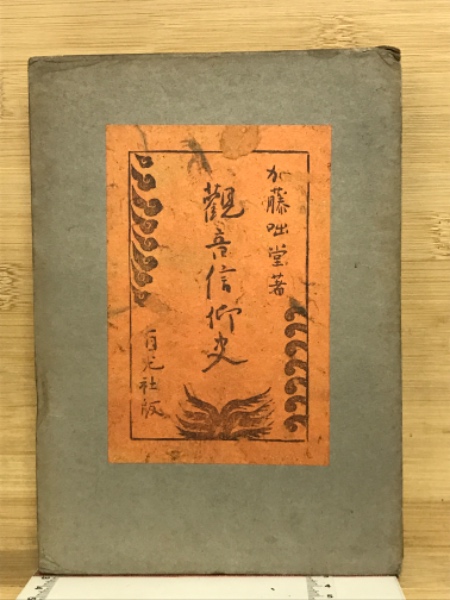 加藤咄堂著
觀音信仰史
百光社版